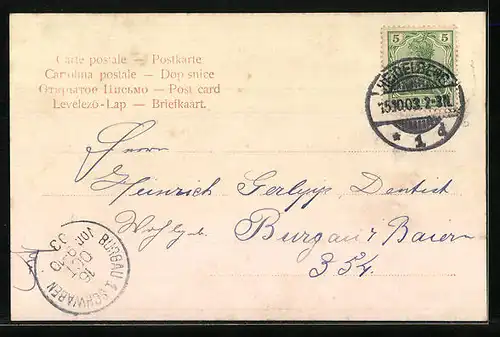 Carte postale — Postkarte
Cartolina postale — Dopisnice
Открытое Письмо — Post card
Levelező-Lap — Briefkaart.
5 5
HEIDELBERG
15.10.03. 2-3N.
* 1 d
Herrn
Heinrich Dentist
Wohlgb.
Burgau Baiern
354.
BURGAU i. SCHWABEN
16
OCT
Vor. 9-10
03